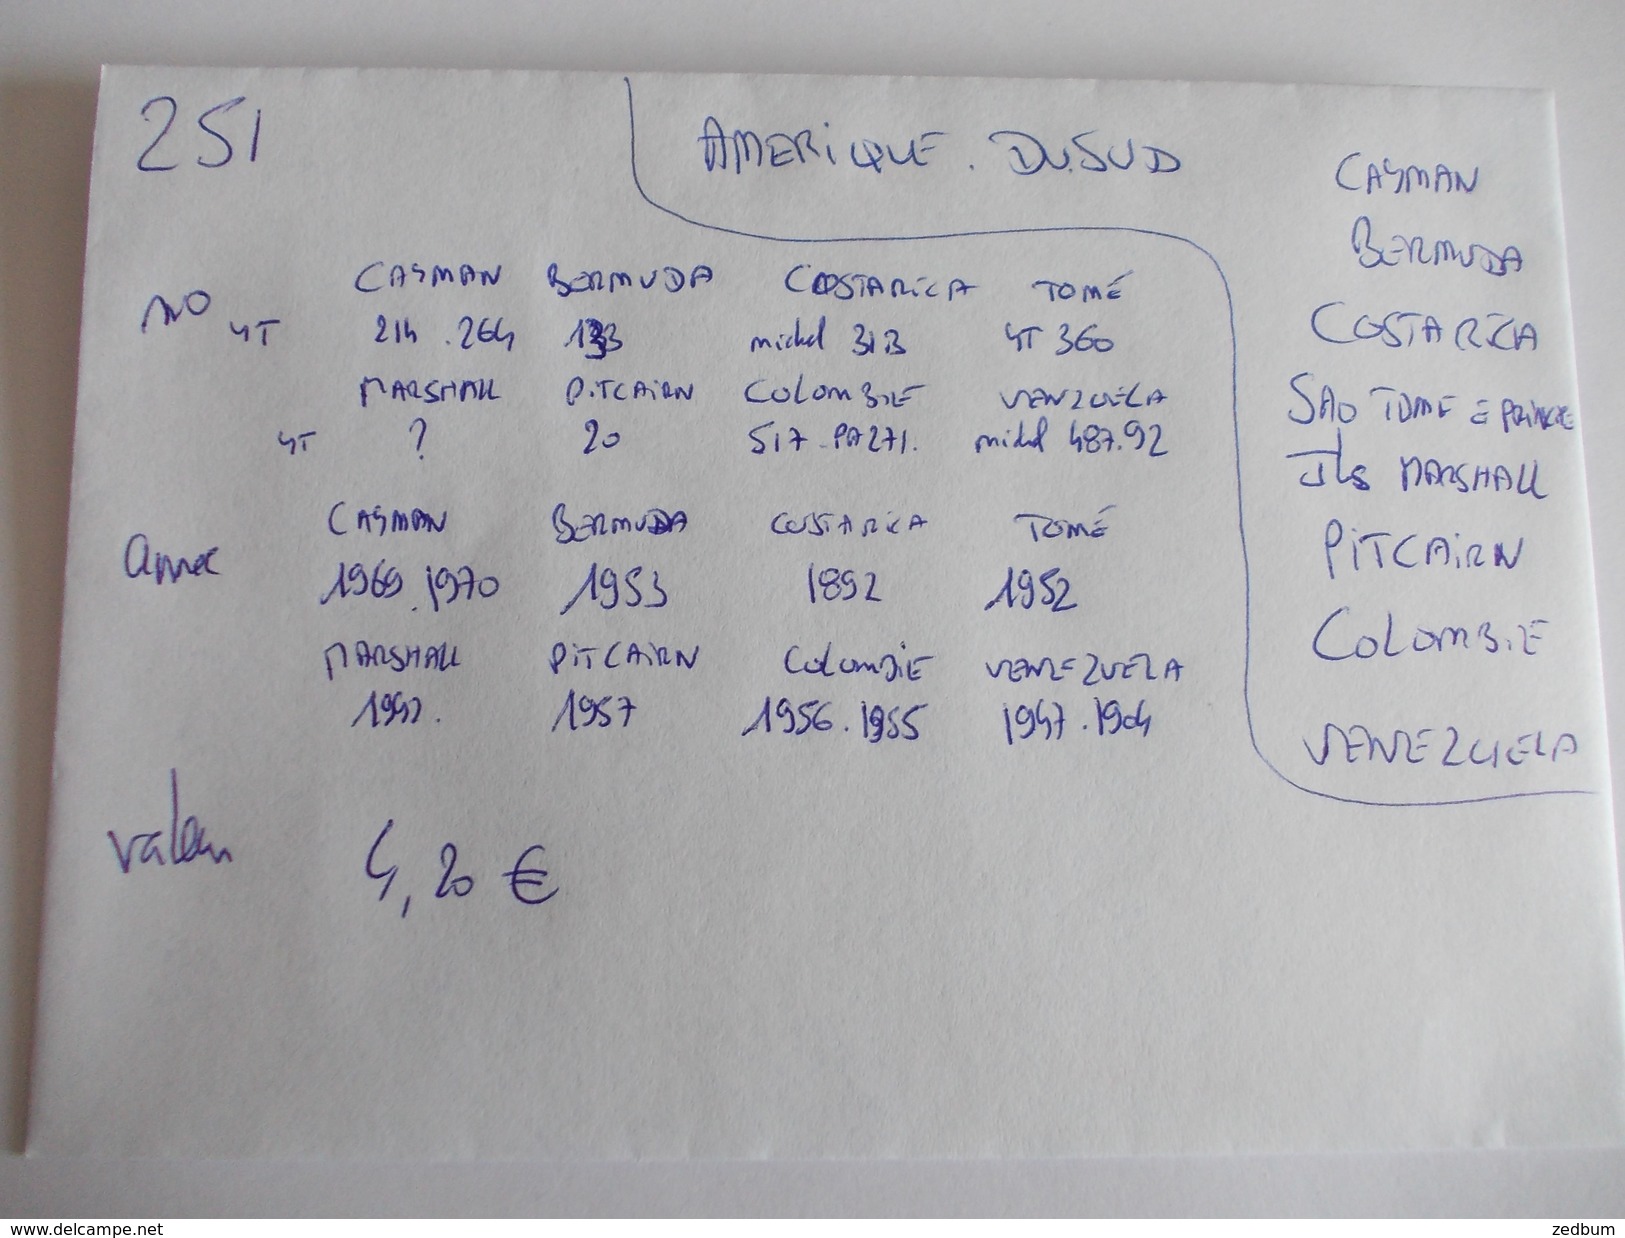 251
AMERIQUE. DU.SUD
NO YT
CAYMAN BERMUDA COSTARICA TOMÉ
214.264 133 michel 313 YT 360
MARSHALL PITCAIRN COLOMBIE VENEZUELA
YT ? 20 517-PA271. michel 487.92
CAYMAN BERMUDA COSTARICA TOMÉ
Année 1969.1970 1953 1892 1952
MARSHALL PITCAIRN COLOMBIE VENEZUELA
1957 1956.1955 1947.1904
valeur 4,20 €
CAYMAN
BERMUDA
COSTARICA
SAO TOME E PRINCIPE
ILS MARSHALL
PITCAIRN
COLOMBIE
VENEZUELA
www.delcampe.net
zedbum